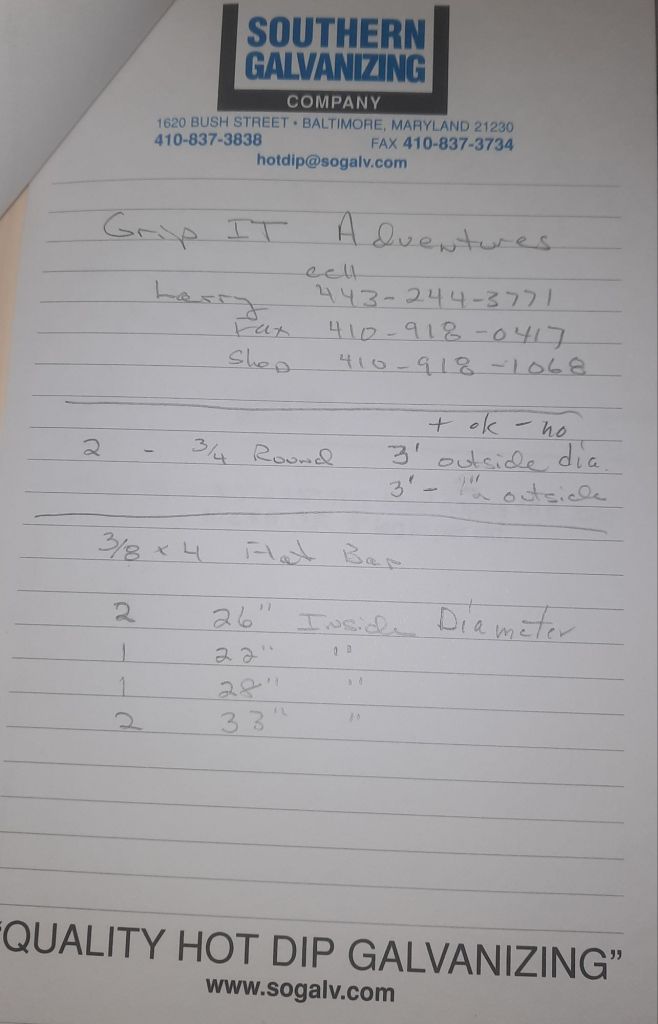 SOUTHERN
GALVANIZING
COMPANY
1620 BUSH STREET • BALTIMORE, MARYLAND 21230
410-837-3838 FAX 410-837-3734
hotdip@sogalv.com
Grip IT Adventures
cell
Larry 443-244-3771
Fax 410-918-0417
Shop 410-918-1068
+ ok - no
2 - 3/4 Round 3' outside dia.
3' - outside
3/8 x 4 Flat Bar
2 26" Inside Diameter
1 22" "
1 28" "
2 33" "
"QUALITY HOT DIP GALVANIZING"
www.sogalv.com